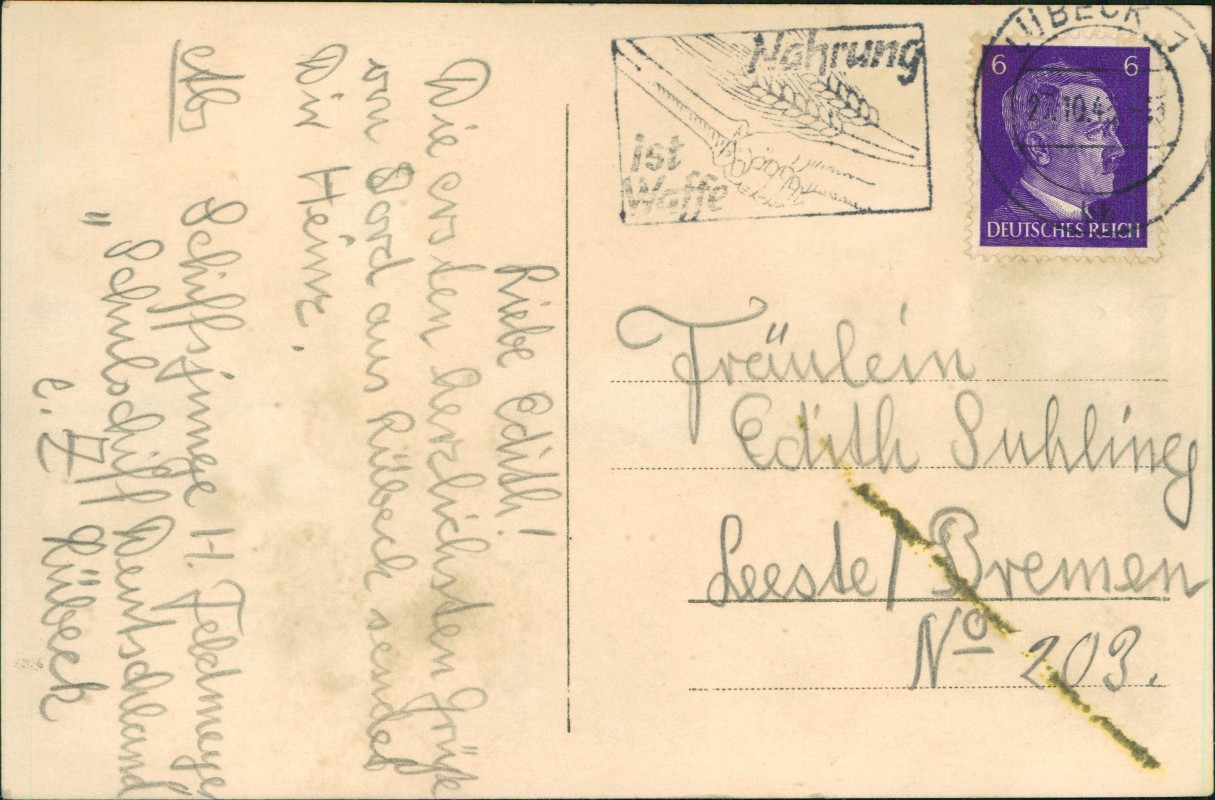 Liebe Edith!
Die ersten herzlichsten Grüße
von Bord aus Lübeck sendet
Dir Heinz.
Abs Schiffsjunge H. Feldmeyer
" Schulschiff Deutschland"
z. Z Lübeck
Nahrung
ist
Waffe
LÜBECK 1
27.10.4
6 6
DEUTSCHES REICH
Fräulein
Edith Suhling
Leeste / Bremen
No 203.